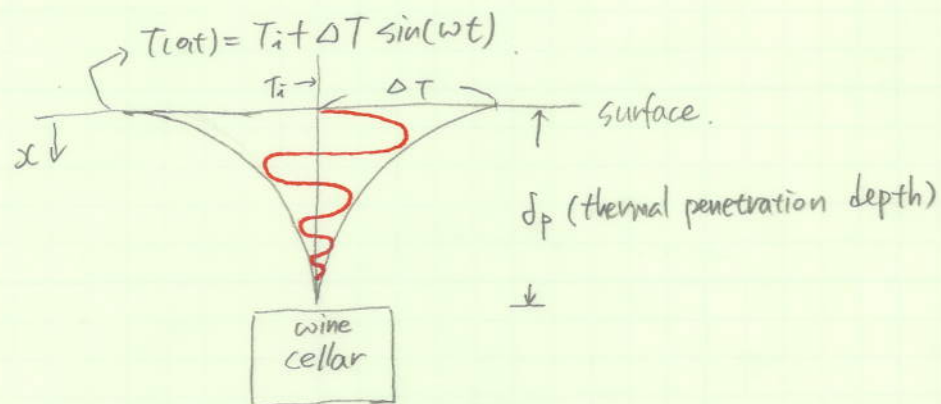 T(o,t) = Ti + ΔT sin(ωt)
Ti → ΔT
surface.
x ↓
δp (thermal penetration depth)
wine
cellar